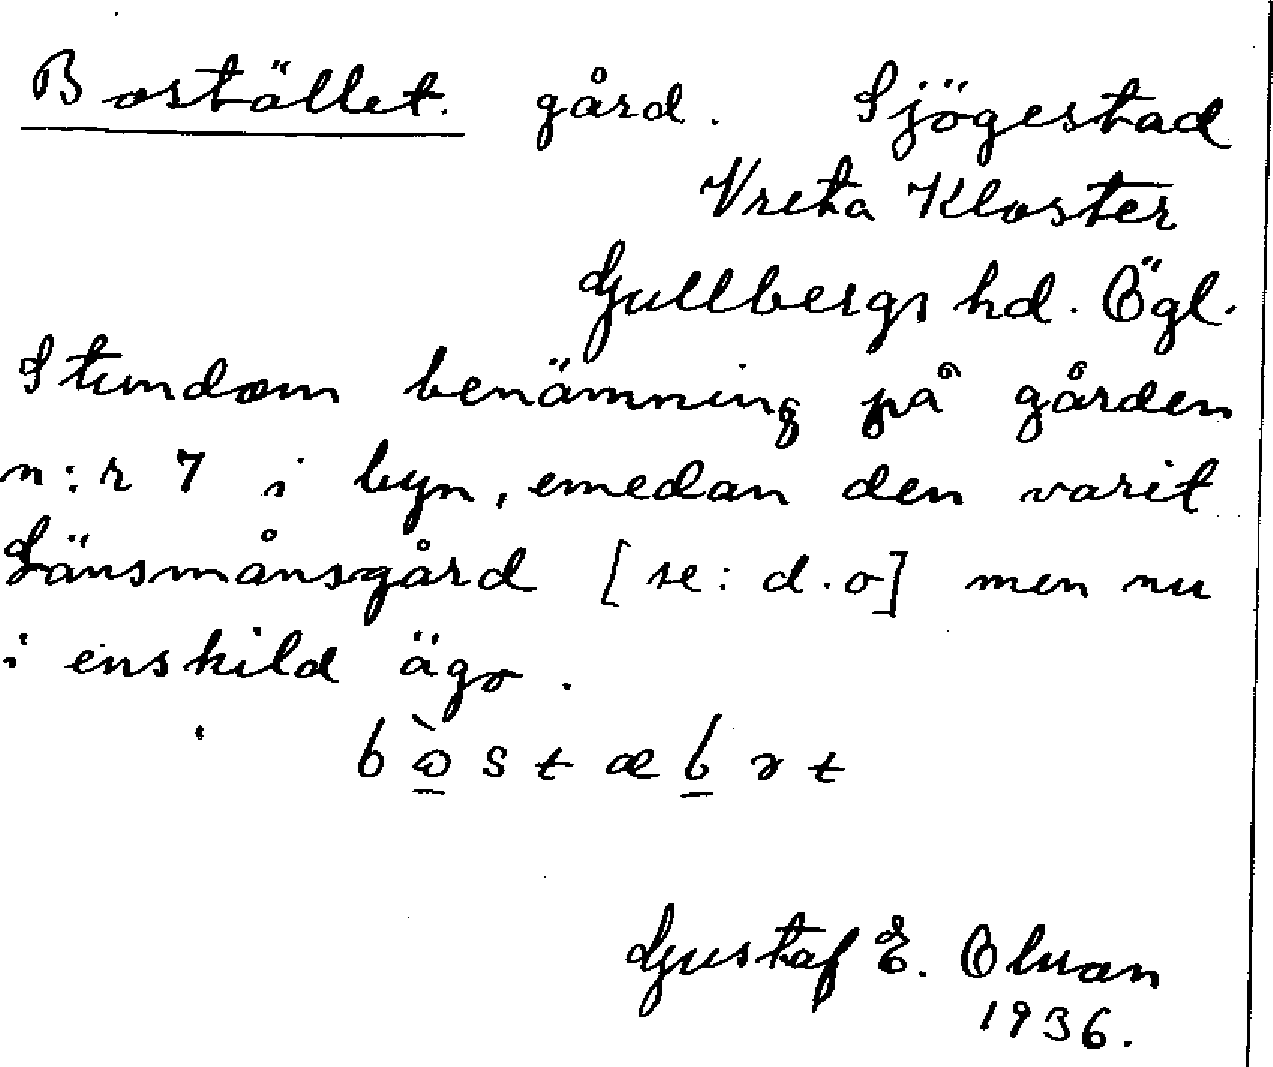 Bostället. gård. Sjögestad
Vreta Kloster
Gullbergs hd. Ögl.
Stundom benämning på gården
n:r 7 i byn, emedan den varit
Länsmånsgård [se: d.o] men nu
i enskild ägo.
Gustaf E. Olsson
1936.